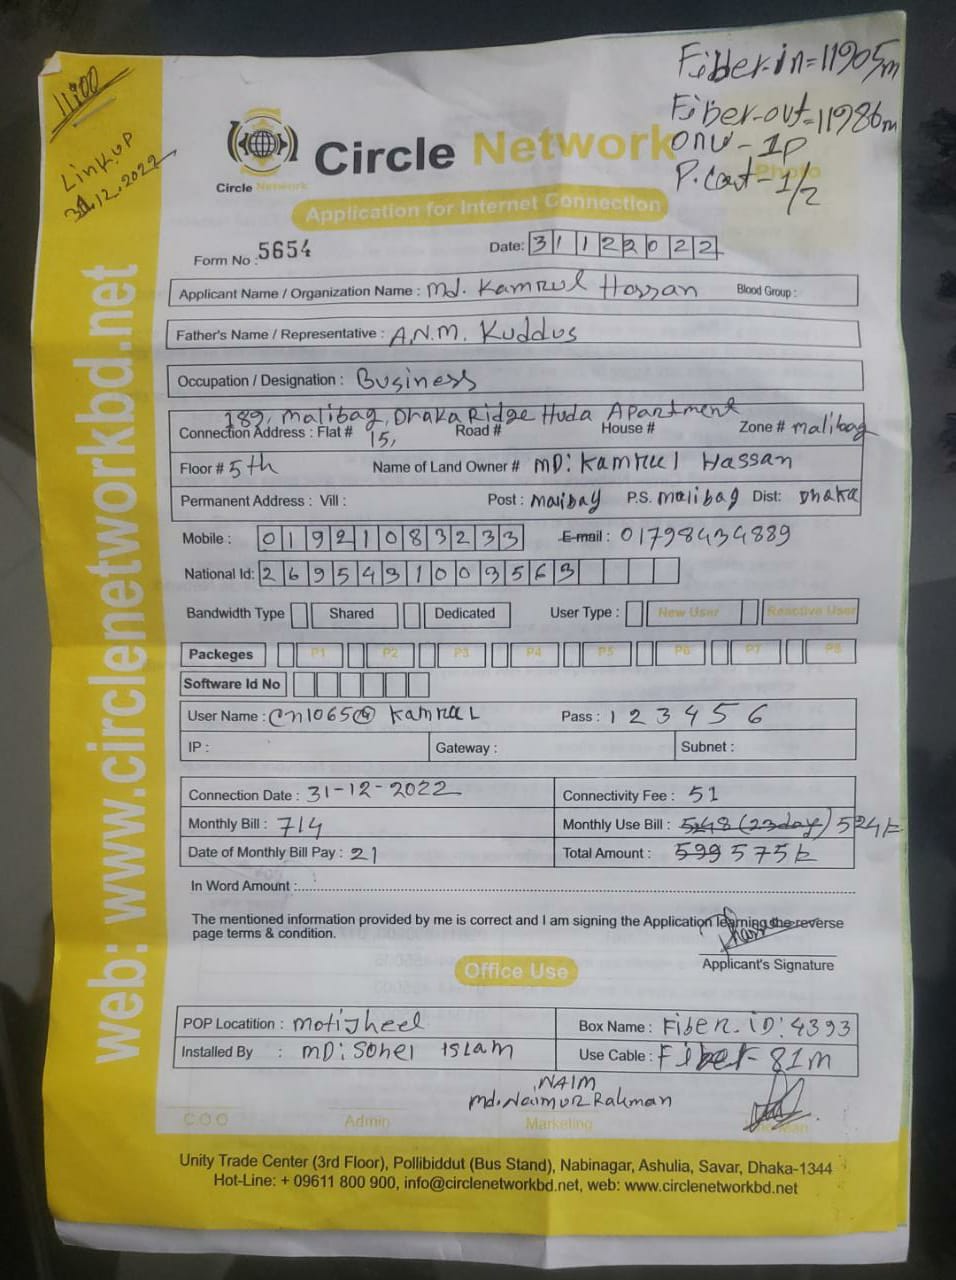 11:00
Linkup
31.12.2022
Fibber-in=11905m
Fiber-out=11986m
onu - 1p
P. Cout - 1/2
Photo
Circle Network
Circle Network
Application for Internet Connection
Form No : 5654
Date: 31122022
Applicant Name / Organization Name : Md. Kamrul Hossan Blood Group :
Father's Name / Representative : A.N.M. Kuddus
Occupation / Designation : Business
189, Malibag, Dhaka Ridge Huda Apartment
Connection Address : Flat # 15, Road # House # Zone # malibag
Floor # 5th Name of Land Owner # MD: Kamrul Hassan
Permanent Address : Vill : Post : malibag P.S. malibag Dist: Dhaka
Mobile : 01921083233 E-mail : 01798434889
National Id: 2695431003563
Bandwidth Type Shared Dedicated User Type : New User Reactive User
Packeges P1 P2 P3 P4 P5 P6 P7 P8
Software Id No
User Name : Cn1065@ Kamrul Pass : 123456
IP : Gateway : Subnet :
Connection Date : 31-12-2022 Connectivity Fee : 51
Monthly Bill : 714 Monthly Use Bill : 5248 (23day) 524k
Date of Monthly Bill Pay : 21 Total Amount : 599 575k
In Word Amount :
The mentioned information provided by me is correct and I am signing the Application learning the reverse
page terms & condition.
Applicant's Signature
Office Use
POP Locatition : Motijheel Box Name : Fiber. iD: 4393
Installed By : MD: Sohel Islam Use Cable : Fiber - 81m
NAIM
Md. Naimur Rahman
C.O.O Admin Marketing
Unity Trade Center (3rd Floor), Pollibiddut (Bus Stand), Nabinagar, Ashulia, Savar, Dhaka-1344
Hot-Line: + 09611 800 900, info@circlenetworkbd.net, web: www.circlenetworkbd.net
web: www.circlenetworkbd.net